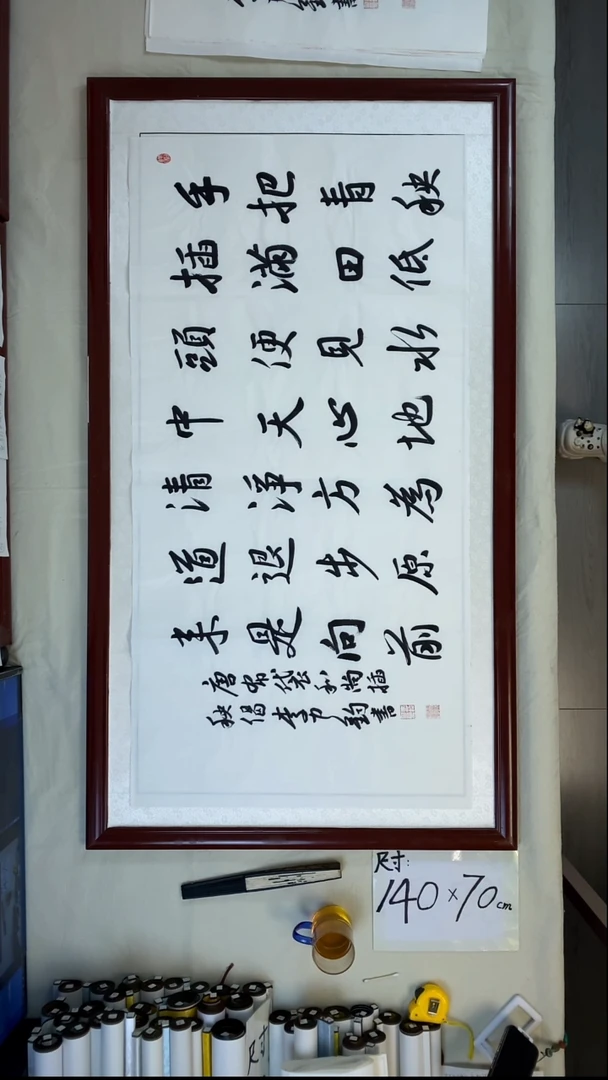 手把青秧
插滿田低
頭便見水
中天心地
清淨方為
道退步原
来是向前
唐布袋和尚插
秧偈李力鈞書
尺寸:
140×70cm
尺寸